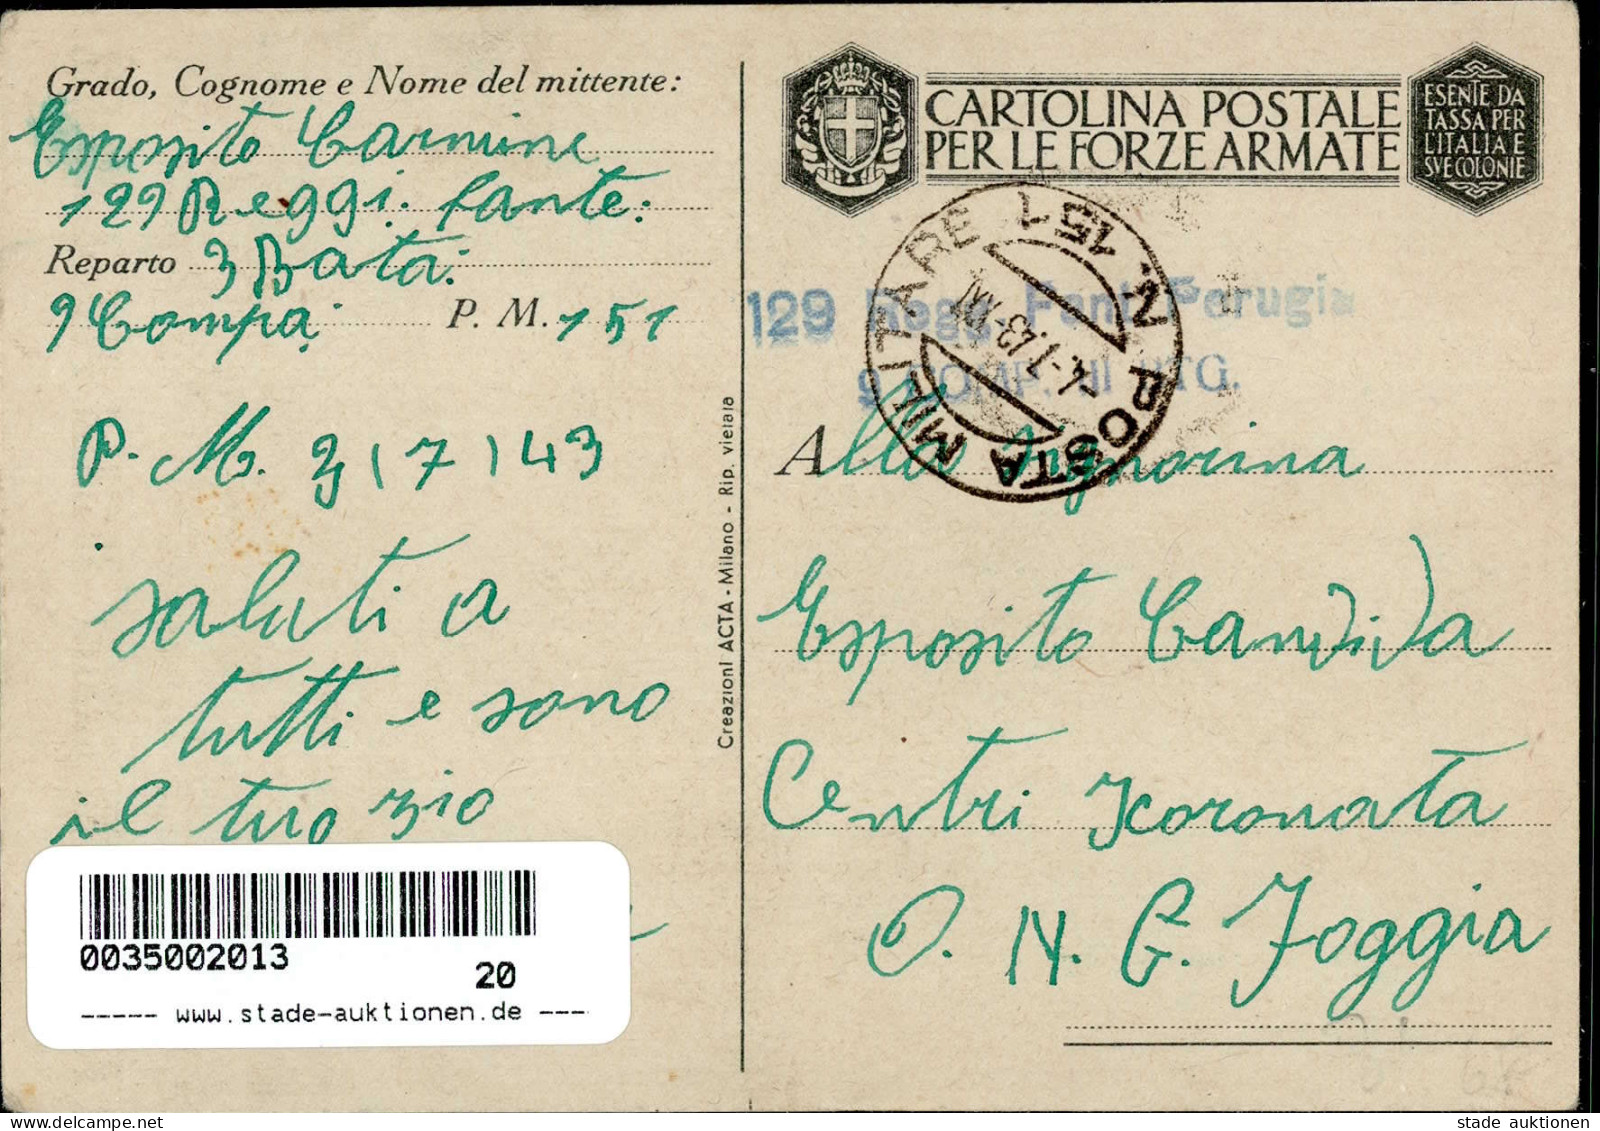 Grado, Cognome e Nome del mittente:
Esposito Carmine
129 Reggi. fante.
Reparto 3 Bata.
9 Compa P. M. 151
P. M. 3/7/43
saluti a
tutti e sono
il tuo zio
0035002013
20
----- www.stade-auktionen.de ---
Creazioni ACTA - Milano - Rip. vietata
CARTOLINA POSTALE
PER LE FORZE ARMATE
ESENTE DA
TASSA PER
L'ITALIA E
SVE COLONIE
POSTA MILITARE N. 151
-4.7.43-XXI
129 Regg. Fant. Perugia
9 COMP. III BTG.
Alla Signorina
Esposito Candida
Centri
O. N. C. Foggia
stade auktionen